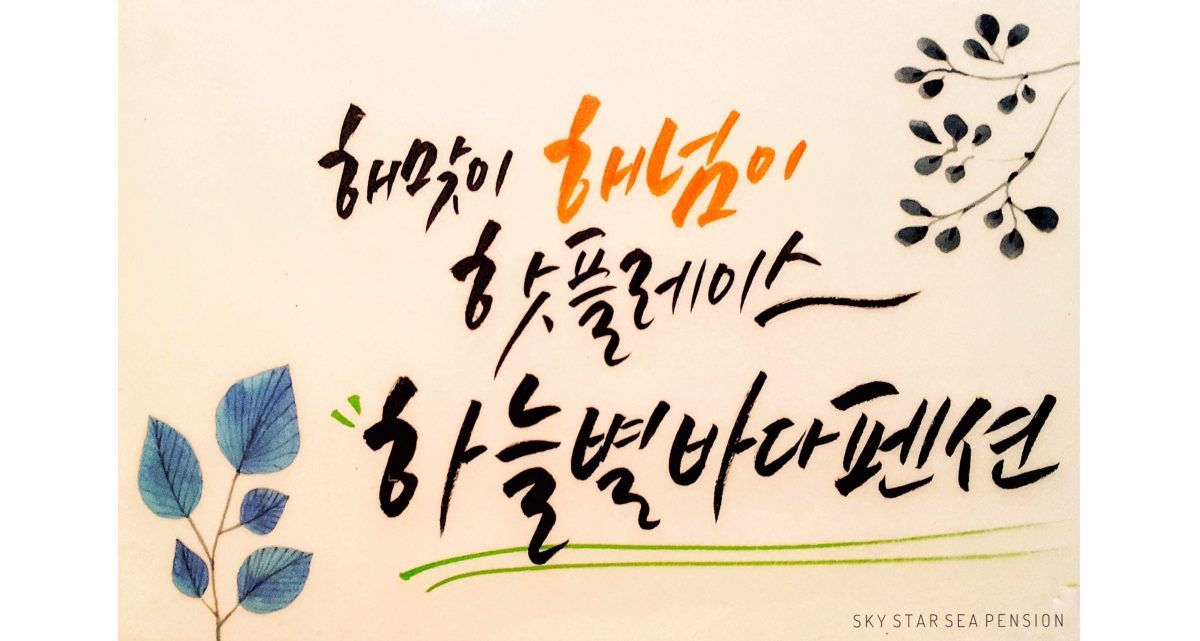 해맞이 해넘이
핫플레이스
하늘별바다펜션
SKY STAR SEA PENSION